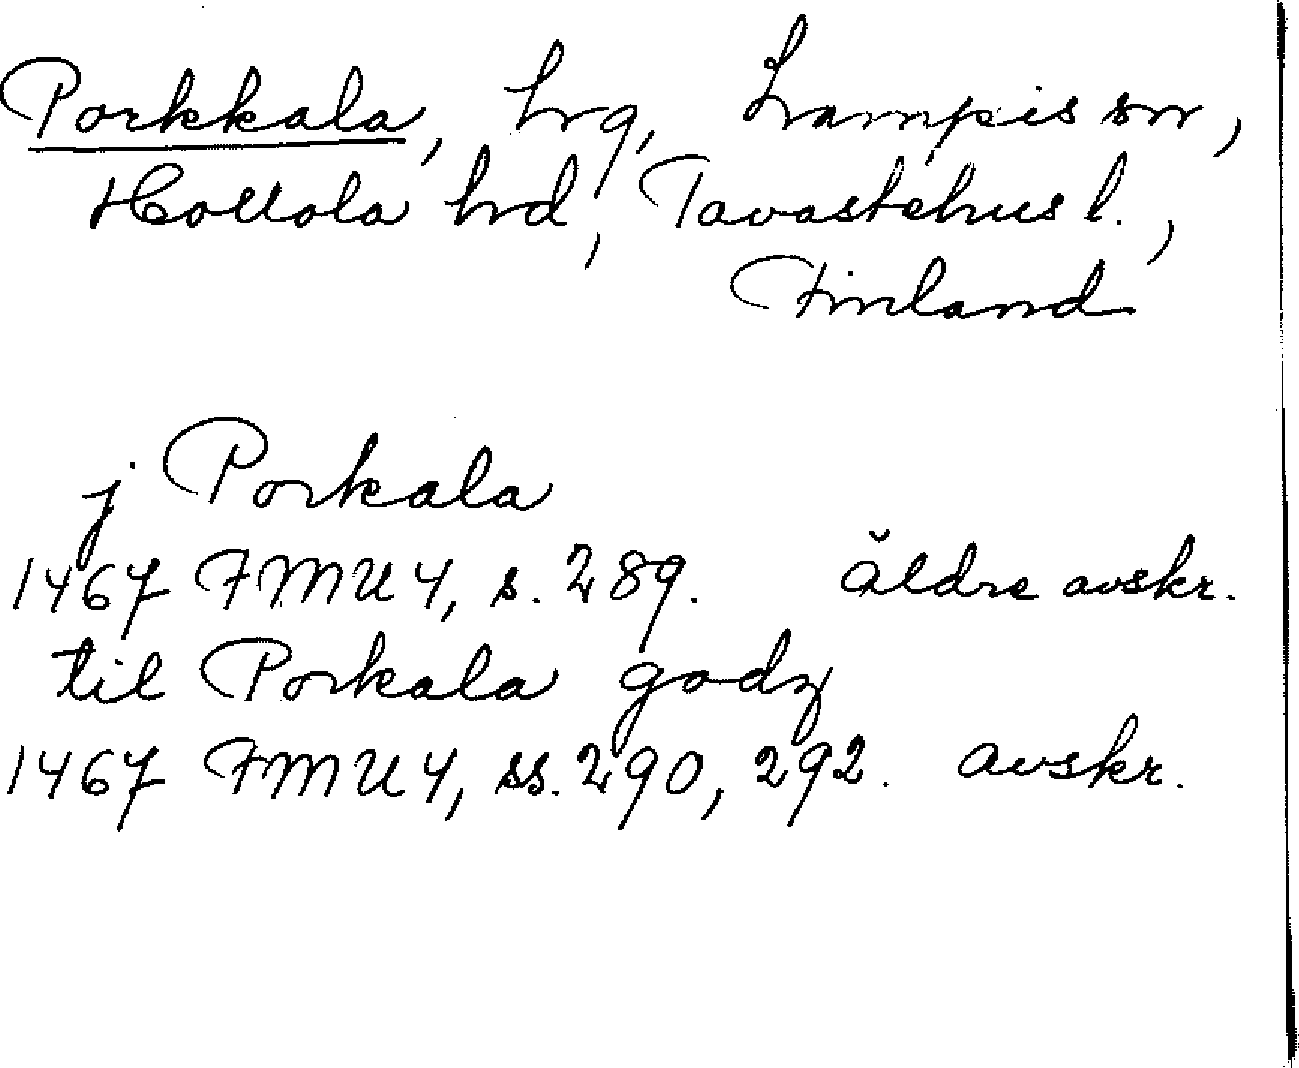 Porkkala, hrg, Lampis sn,
Hollola hrd, Tavastehus l.,
Finland
j Porkala
1467 FMU 4, s. 289. äldre avskr.
til Porkala godz
1467 FMU 4, ss. 290, 292. avskr.